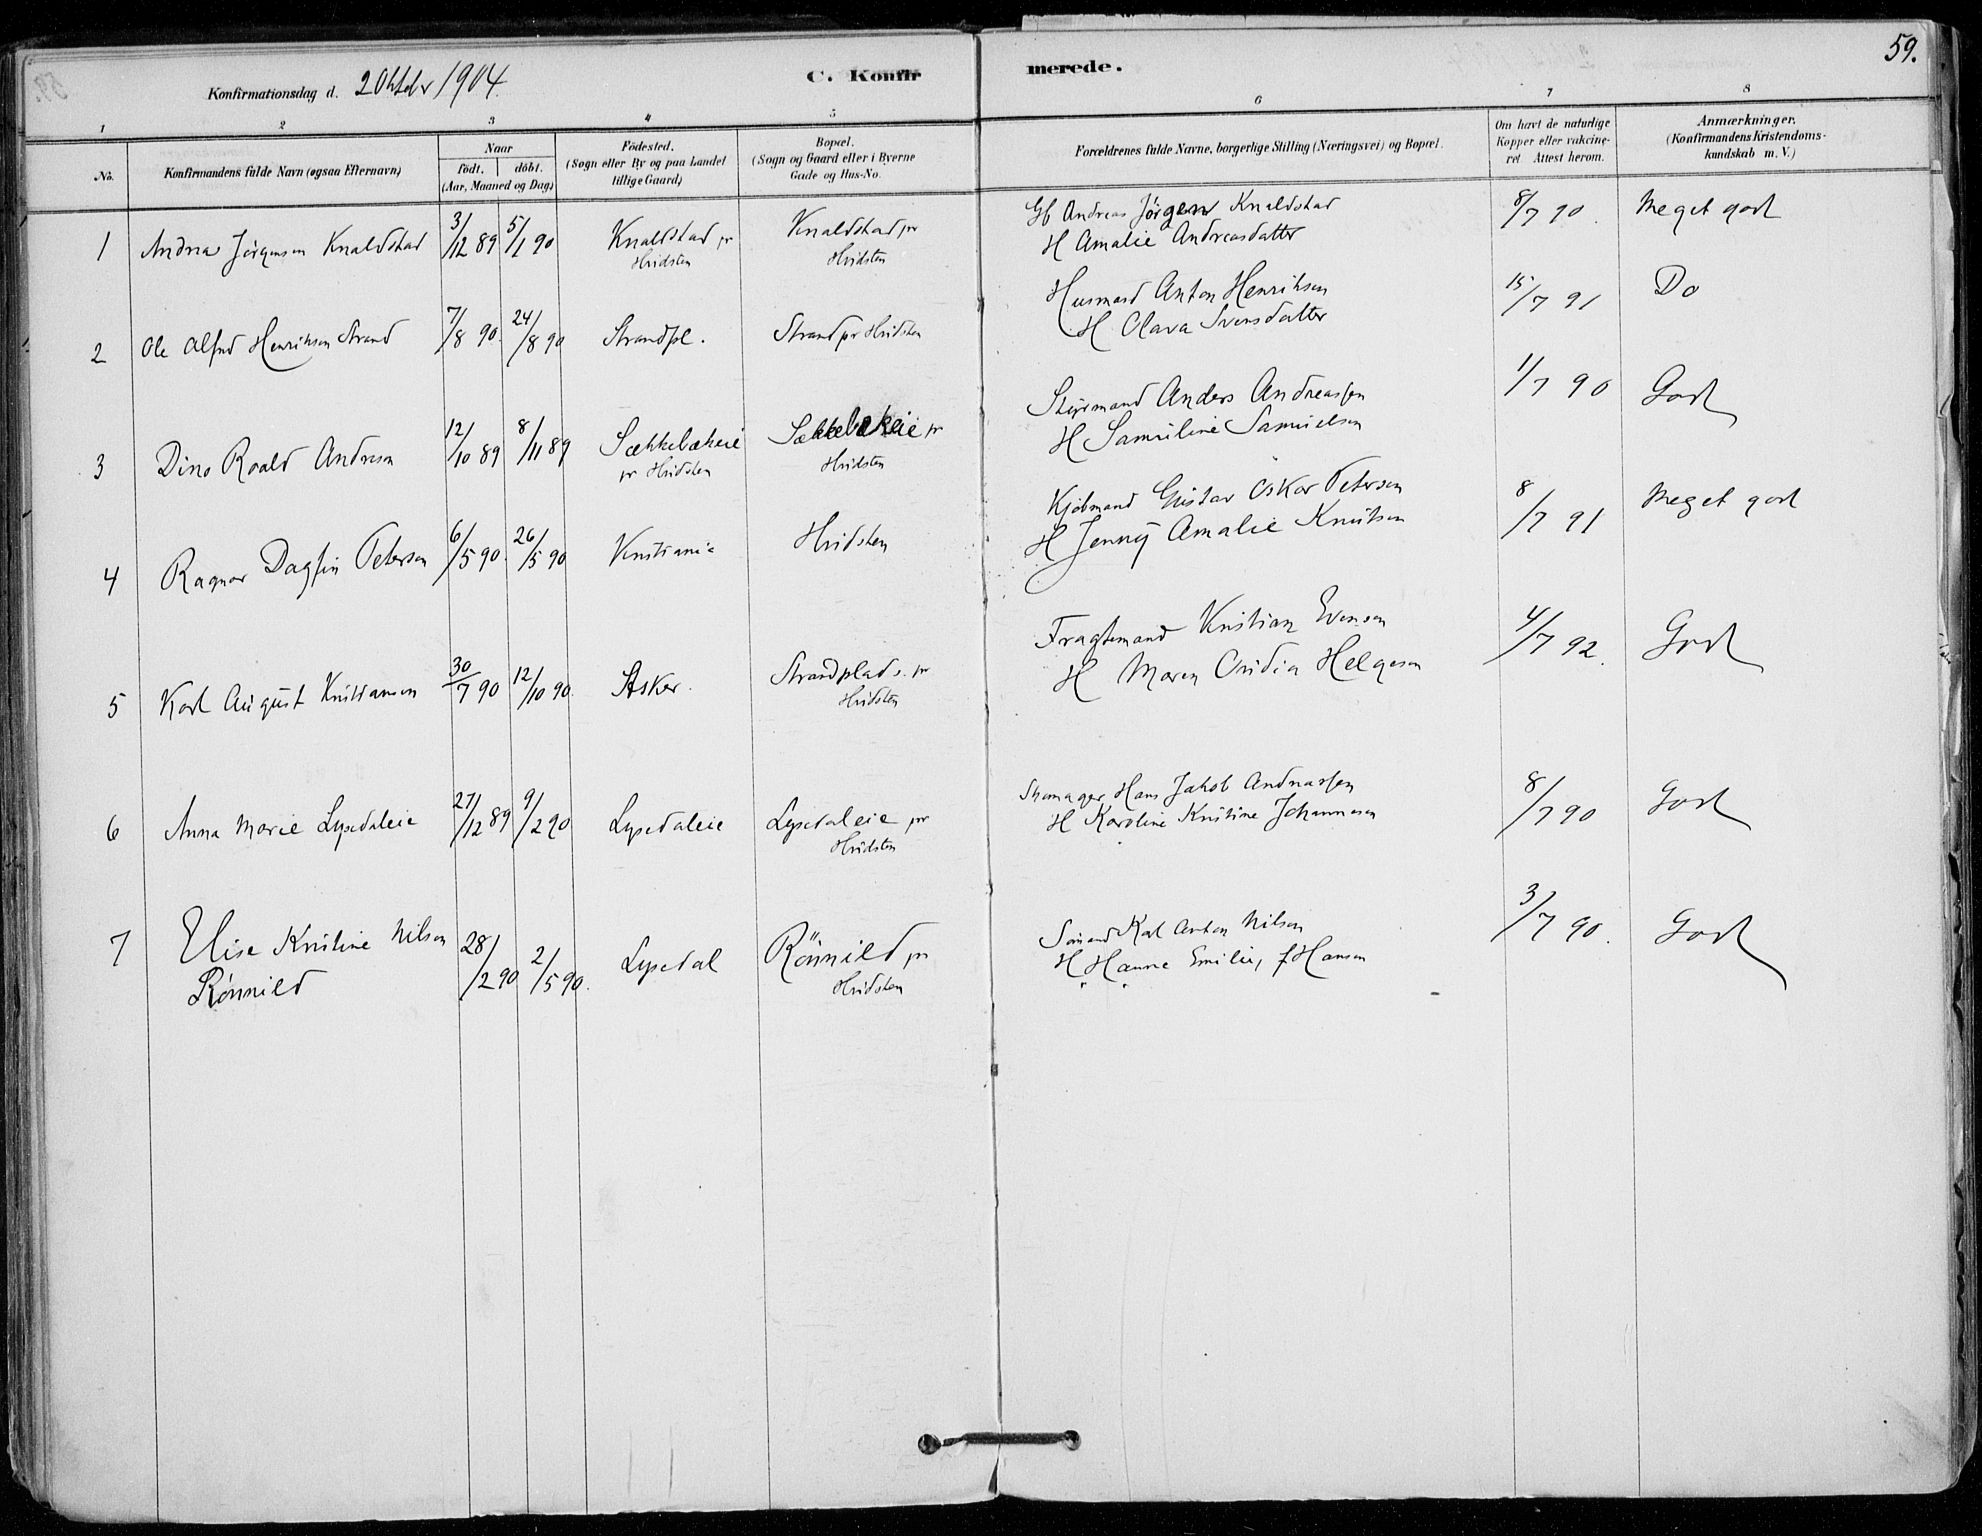 59.
Konfirmationsdag d. 2 Oktobr 1904.
C. Konfirmerede.
1 2 3 4 5 6 7 8
No.
Konfirmandens fulde Navn (ogsaa Efternavn)
Naar
födt. döbt.
(Aar, Maaned og Dag)
Födested.
(Sogn eller By og paa Landet
tillige Gaard)
Bopæl.
(Sogn og Gaard eller i Byerne
Gade og Hus-No.
Forældrenes fulde Navne, borgerlige Stilling (Næringsvei) og Bopæl.
Om havt de naturlige
Kopper eller vakcine-
ret. Attest herom.
Anmærkninger.
(Konfirmandens Kristendoms-
kundskab m. V.)
1 Andrea Jörgensen Knaldstad 3/12 89 5/1 90 Knaldstad pr Knaldstad pr Gb Andreas Jörgen Knaldstad 8/7 90. Meget godt
Hvidsten Hvidsten H Amalie Andreasdatter
2 Ole Alfred Henriksen Strand 7/8 90. 24/8 90 Strandpl. Strand pr Hvidsten Husmand Anton Henriksen 15/7 91 Do
H. Olava Svensdatter
3 Dino Roald Andresen 12/10 89 8/11 89 Sækkebækeie Sækkebækeie pr Styrmand Anders Andreassen 1/7 90 Godt
pr Hvidsten Hvidsten H Samuline Samuelsen
4 Ragnar Dagfin Petersen 6/5 90. 26/5 90 Kristiania Hvidsten Kjöbmand Gustav Oskar Petersen 8/7 91 Meget godt
H Jenny Amalie Knutsen
5 Karl August Kristiansen 30/7 90 12/10 90. Asker. Strandplads. pr Fragtemand Kristian Evensen 4/7 92. Godt
Hvidsten H Maren Ovidia Helgesen
6 Anna Marie Lysedaleie 27/12 89 9/2 90 Lysedaleie Lysedaleie pr Skomager Hans Jakob Andreassen 8/7 90 Godt
Hvidsten H Karoline Kristine Johannesen
7 Elise Kristine Nilsen 28/2 90 2/5 90. Lysedal Rönnild pr Sömand Karl Anton Nilsen 3/7 90. Godt
Rönnild Hvidsten H Hanne Emilie, f Hansen